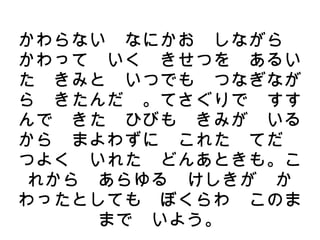 かわらない　なにかお　しながら
かわって　いく　きせつを　あるい
た　きみと　いつでも　つなぎなが
ら　きたんだ　。てさぐりで　すす
んで　きた　ひびも　きみが　いる
から　まよわずに　これた　てだ
つよく　いれた　どんあときも。こ
れから　あらゆる　けしきが　か
わったとしても　ぼくらわ　このま
まで　いよう。